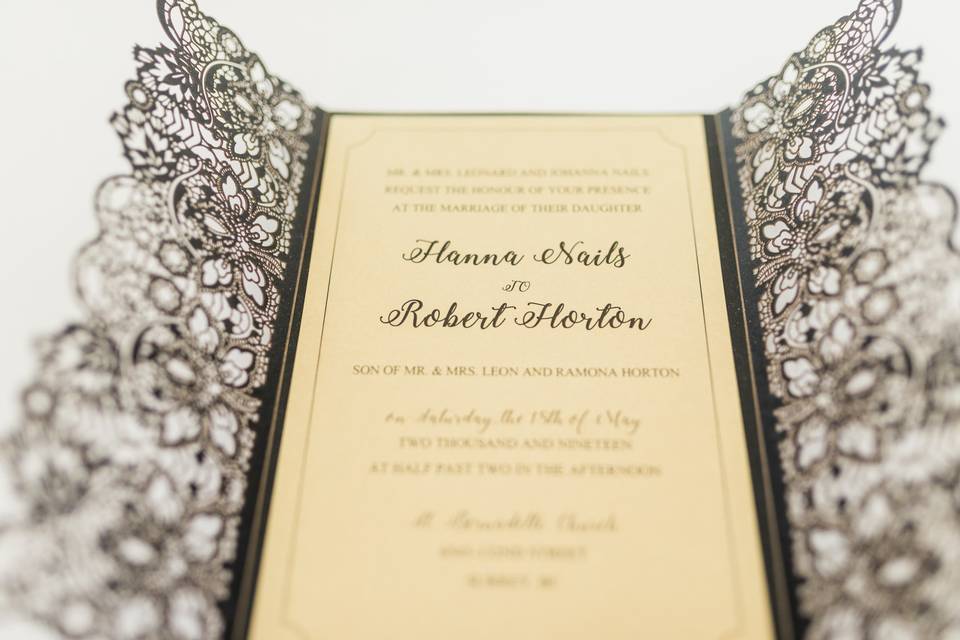 MR. & MRS. LEONARD AND JOHANNA NAILS
REQUEST THE HONOUR OF YOUR PRESENCE
AT THE MARRIAGE OF THEIR DAUGHTER
Hanna Nails
TO
Robert Horton
SON OF MR. & MRS. LEON AND RAMONA HORTON
on Saturday, the 18th of May
TWO THOUSAND AND NINETEEN
AT HALF PAST TWO IN THE AFTERNOON
St. Bernadette Church
STREET